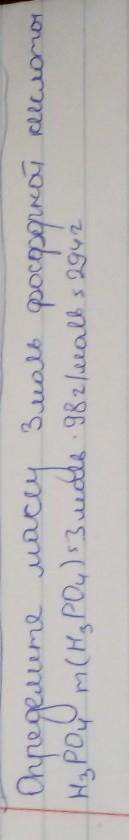 Определите массу 3 моль фосфорной кислоты
H₃PO₄ m(H₃PO₄)=3 моль · 98 г/моль = 294 г